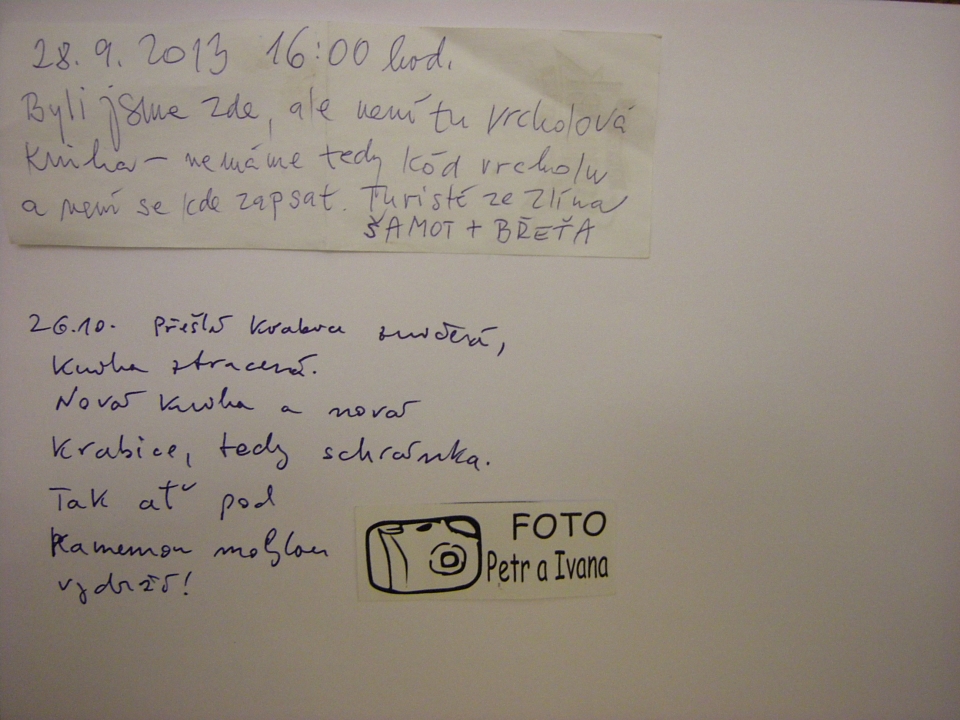 28.9.2013 16:00 hod.
Byli jsme zde, ale není tu vrcholová
kniha – nemáme tedy kód vrcholu
a není se kde zapsat. Turisté ze Zlína
ŠAMOT + BŘEŤA
26.10. Přešlá krabice zničená,
kniha ztracená.
Nová kniha a nová
krabice, tedy schránka.
Tak ať pod
kamennou mohylou
vydrží!
FOTO
Petr a Ivana